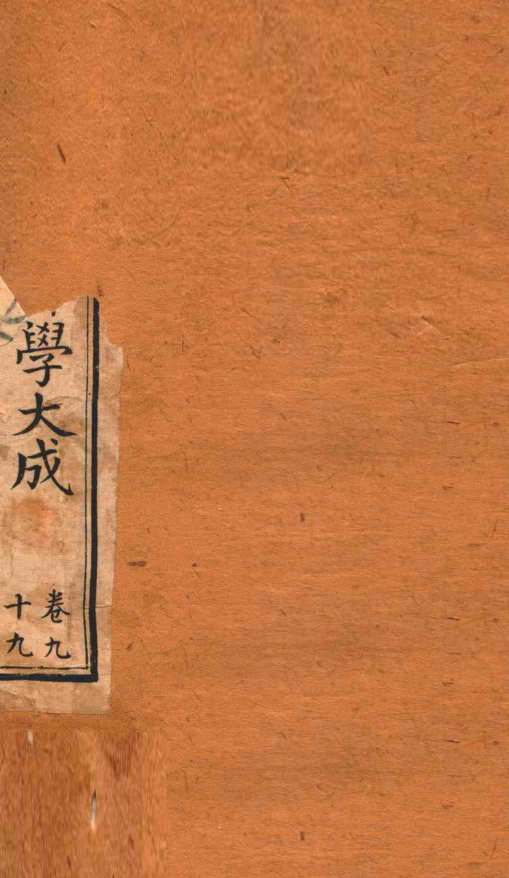 學大成
卷九
十九